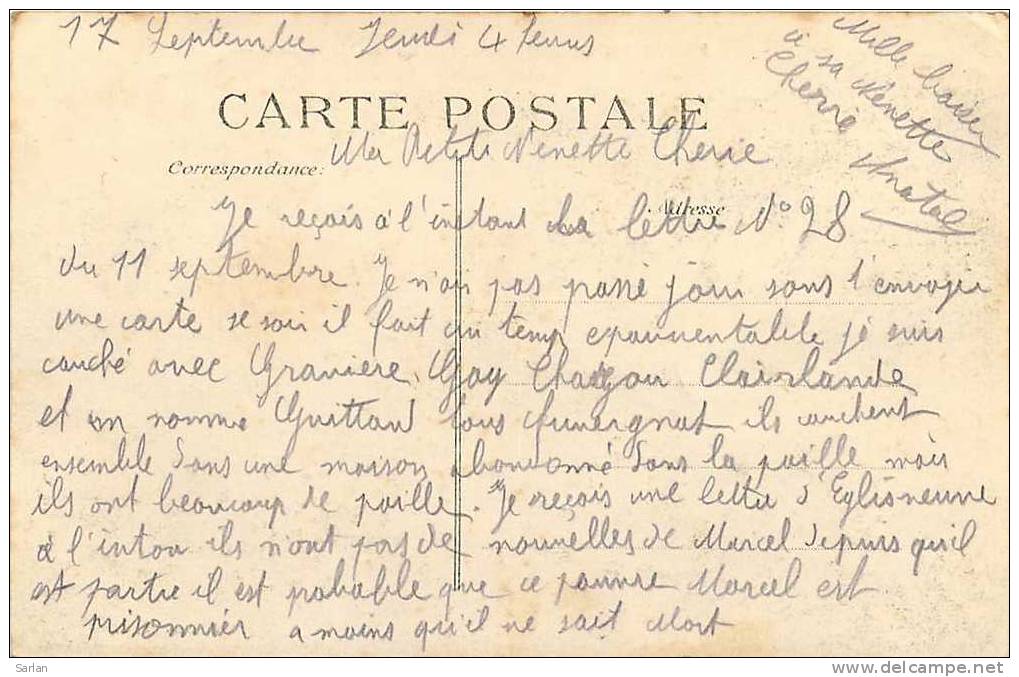 17 Septembre Jeudi 4 heures
Mille baiser
a sa Nenette
Cherie Anatol
CARTE POSTALE
Ma Petite Nenette Cherie
Correspondance:
Adresse
Je reçois a l'instant la lettre N° 28
du 11 septembre. Je n'ai pas passé jour sans t'envoyer
une carte se soir il fait un temp epouventable je suis
couché avec Graniere, Gay Chargou Clairlande
et un nommé Guittard tous Auvergnat ils couchent
ensemble dans une maison abondonné dans la paille mais
ils ont beaucoup de paille. Je reçois une lettre d'Egliseneuve
a l'intan ils n'ont pas de nouvelles de Marcel depuis qu'il
est partie il est pobable que ce pauvre Marcel est
prisonnier a moins qu'il ne sait Mort
Sarlan
www.delcampe.net